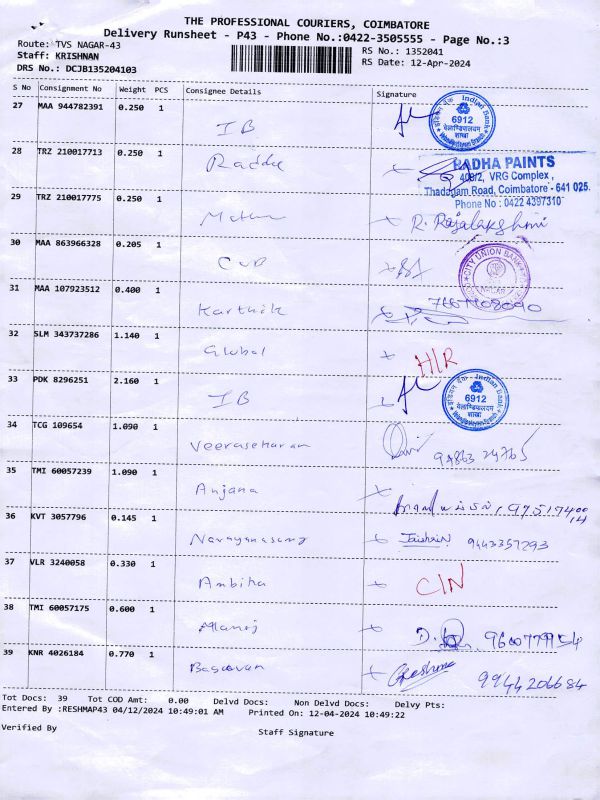 THE PROFESSIONAL COURIERS, COIMBATORE
Delivery Runsheet - P43 - Phone No.:0422-3505555 - Page No.:3
Route: TVS NAGAR-43
RS No.: 1352041
Staff: KRISHNAN
RS Date: 12-Apr-2024
DRS No.: DCJB135204103
S No Consignment No Weight PCS Consignee Details Signature
27 MAA 944782391 0.250 1 IB
Indian Bank
6912
शाखा
28 TRZ 210017713 0.250 1
RADHA PAINTS
409/2, VRG Complex,
Thadagam Road, Coimbatore - 641 025.
Phone No : 0422 4397310
29 TRZ 210017775 0.250 1 R. Rajalakshmi
30 MAA 863966328 0.205 1 CUB
CITY UNION BANK
31 MAA 107923512 0.400 1 Karthik
32 SLM 343737286 1.140 1 Global
33 PDK 8296251 2.160 1 IB
Indian Bank
6912
शाखा
34 TCG 109654 1.090 1
35 TMI 60057239 1.090 1 Anjana
36 KVT 3057796 0.145 1 9443357293
37 VLR 3240058 0.330 1 Ambika
38 TMI 60057175 0.600 1 Manoj
39 KNR 4026184 0.770 1 Reshma 9944206684
Tot Docs: 39 Tot COD Amt: 0.00 Delvd Docs: Non Delvd Docs: Delvy Pts:
Entered By :RESHMAP43 04/12/2024 10:49:01 AM Printed On: 12-04-2024 10:49:22
Verified By
Staff Signature